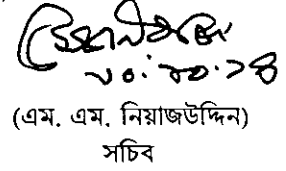 ৩০.১০.১৪
(এম. এম. নিয়াজউদ্দিন)
সচিব